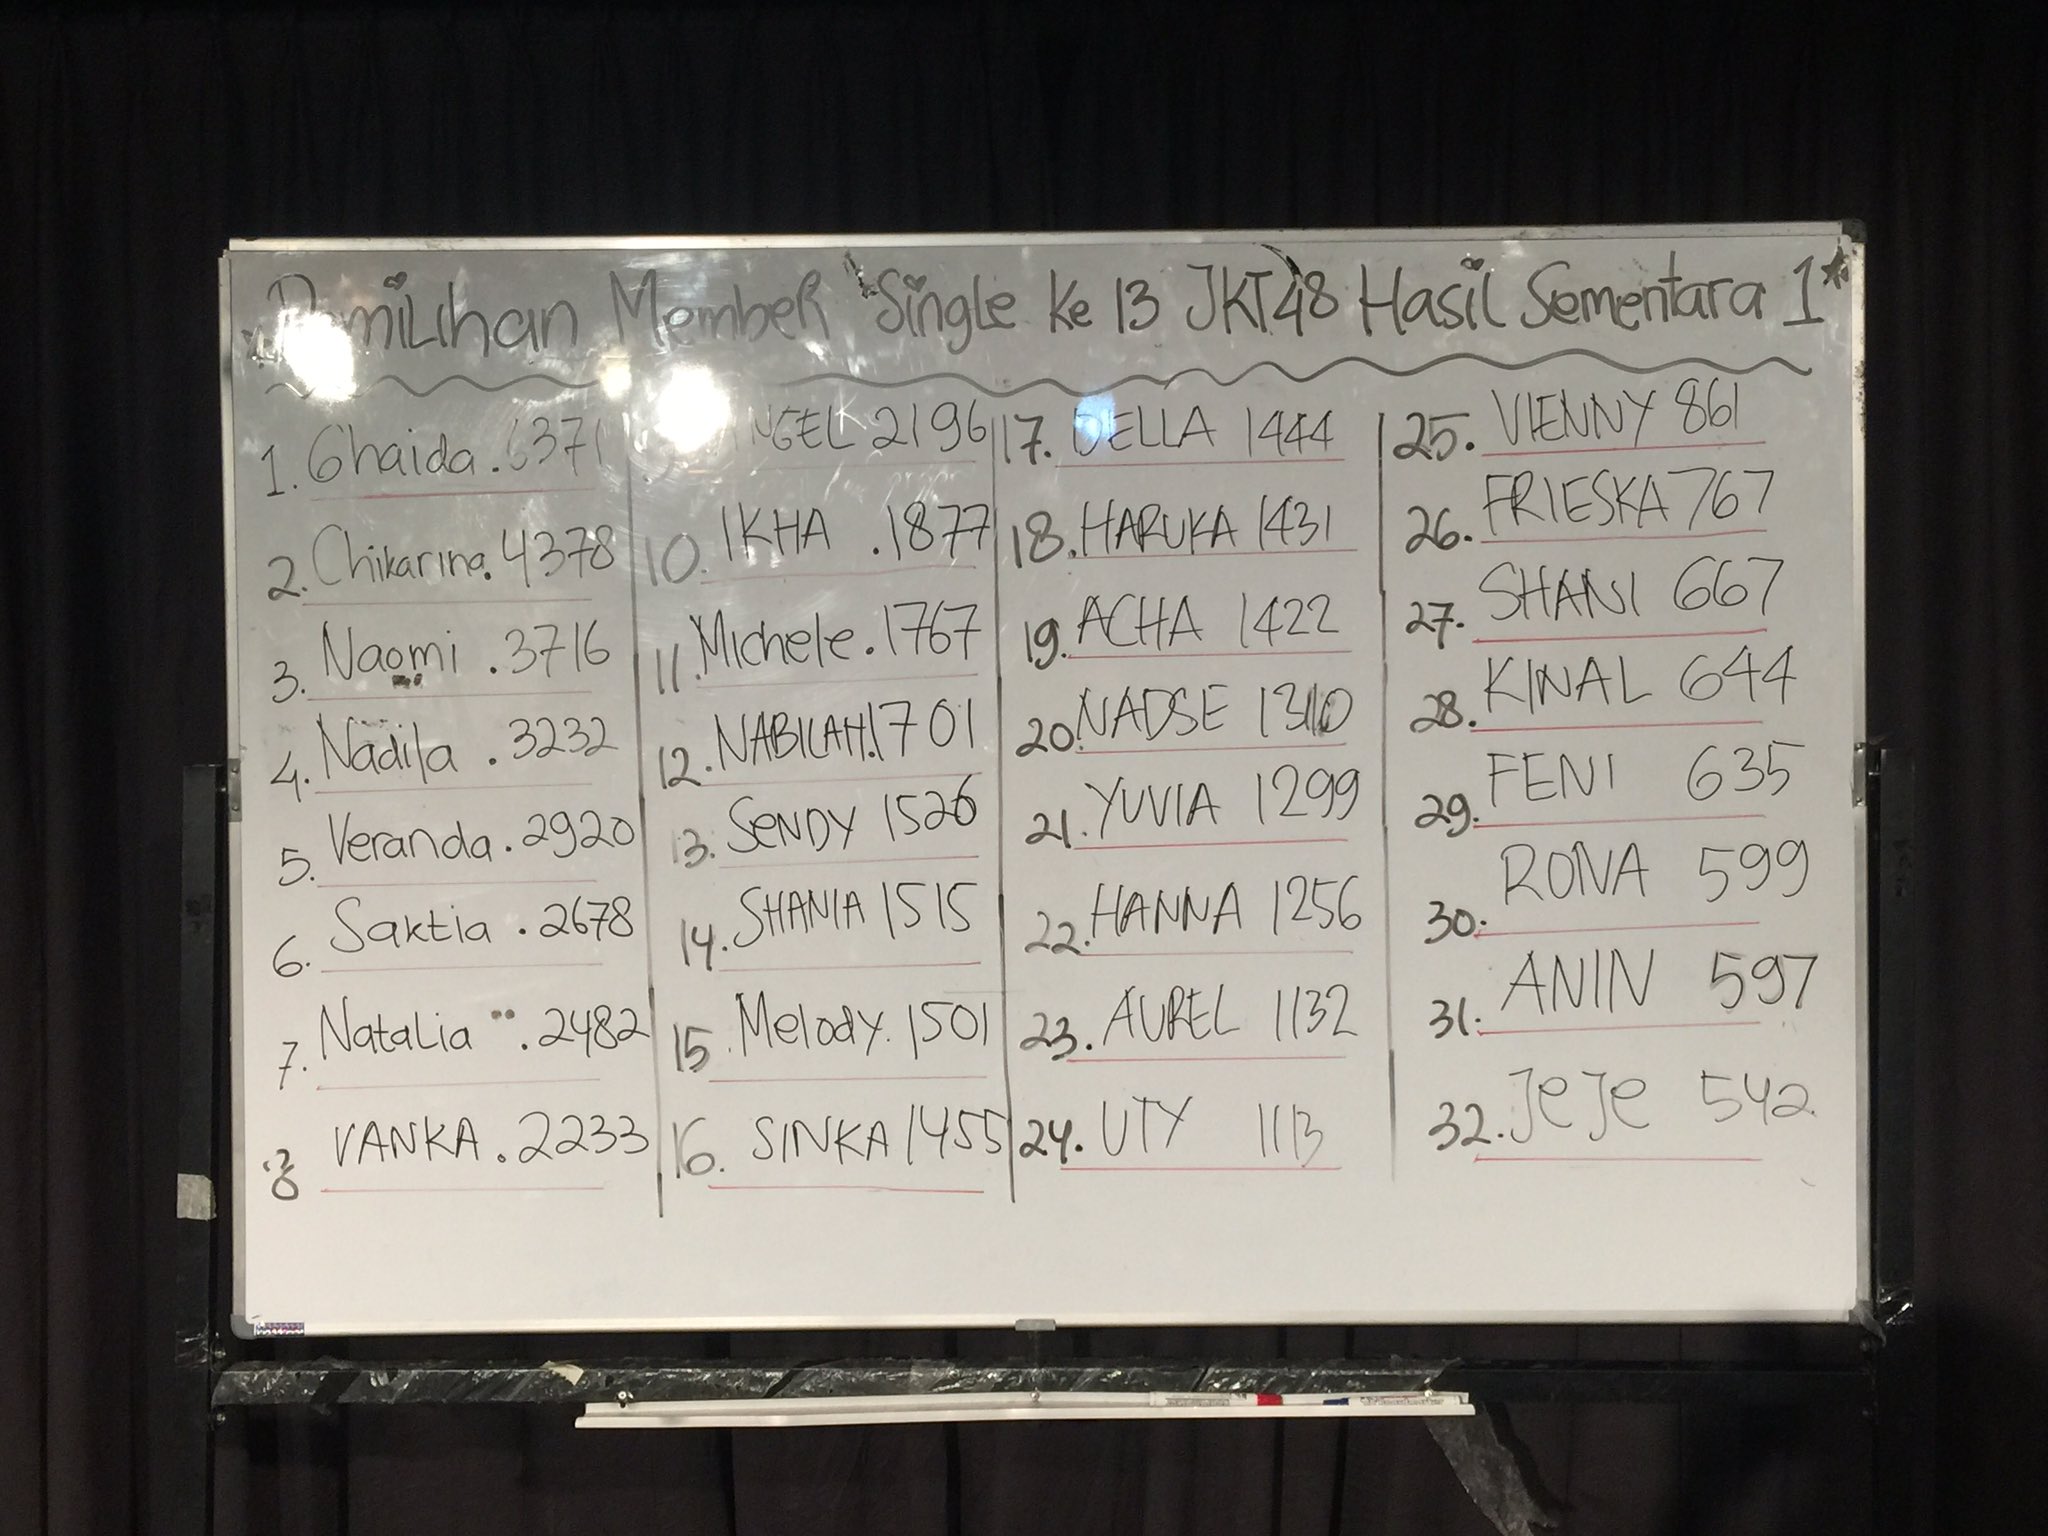 Pemilihan Member Single Ke 13 JKT48 Hasil Sementara 1
1. Ghaida . 6371
2. Chikarina. 4378
3. Naomi . 3716
4. Nadila . 3232
5. Veranda . 2920
6. Saktia . 2678
7. Natalia . 2482
8 VANKA . 2233
2196
10. IKHA . 1877
11. Michele . 1767
12. NABILAH. 1701
13. SeNDY 1526
14. SHANIA 1515
15. Melody. 1501
16. SINKA 1455
17. DELLA 1444
18. HARUKA 1431
19. ACHA 1422
20. NADSE 1310
21. YUVIA 1299
22. HANNA 1256
23. AUREL 1132
24. UTY 1113
25. VIENNY 861
26. FRIESKA 767
27. SHANI 667
28. KINAL 644
29. FENI 635
30. RONA 599
31. ANIN 597
32. JeJe 542